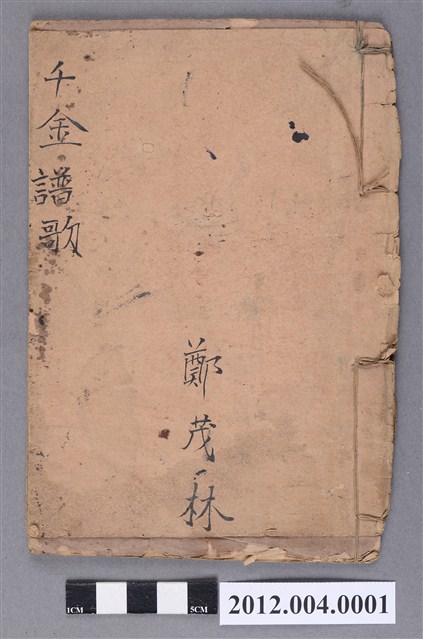 千金譜歌
鄭茂林
1CM
5CM
2012.004.0001